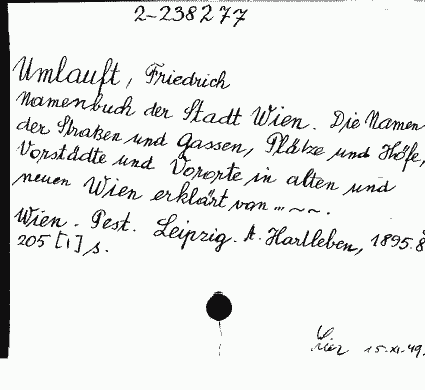 2-238277
Umlauft, Friedrich
Namenbuch der Stadt Wien. Die Namen
der Straßen und Gassen, Plätze und Höfe,
Vorstädte und Vororte in alten und
neuen Wien erklärt von ... ~~.
Wien. Pest. Leipzig. A. Hartleben, 1895. 8
205 [1] s.
15.XI.49.